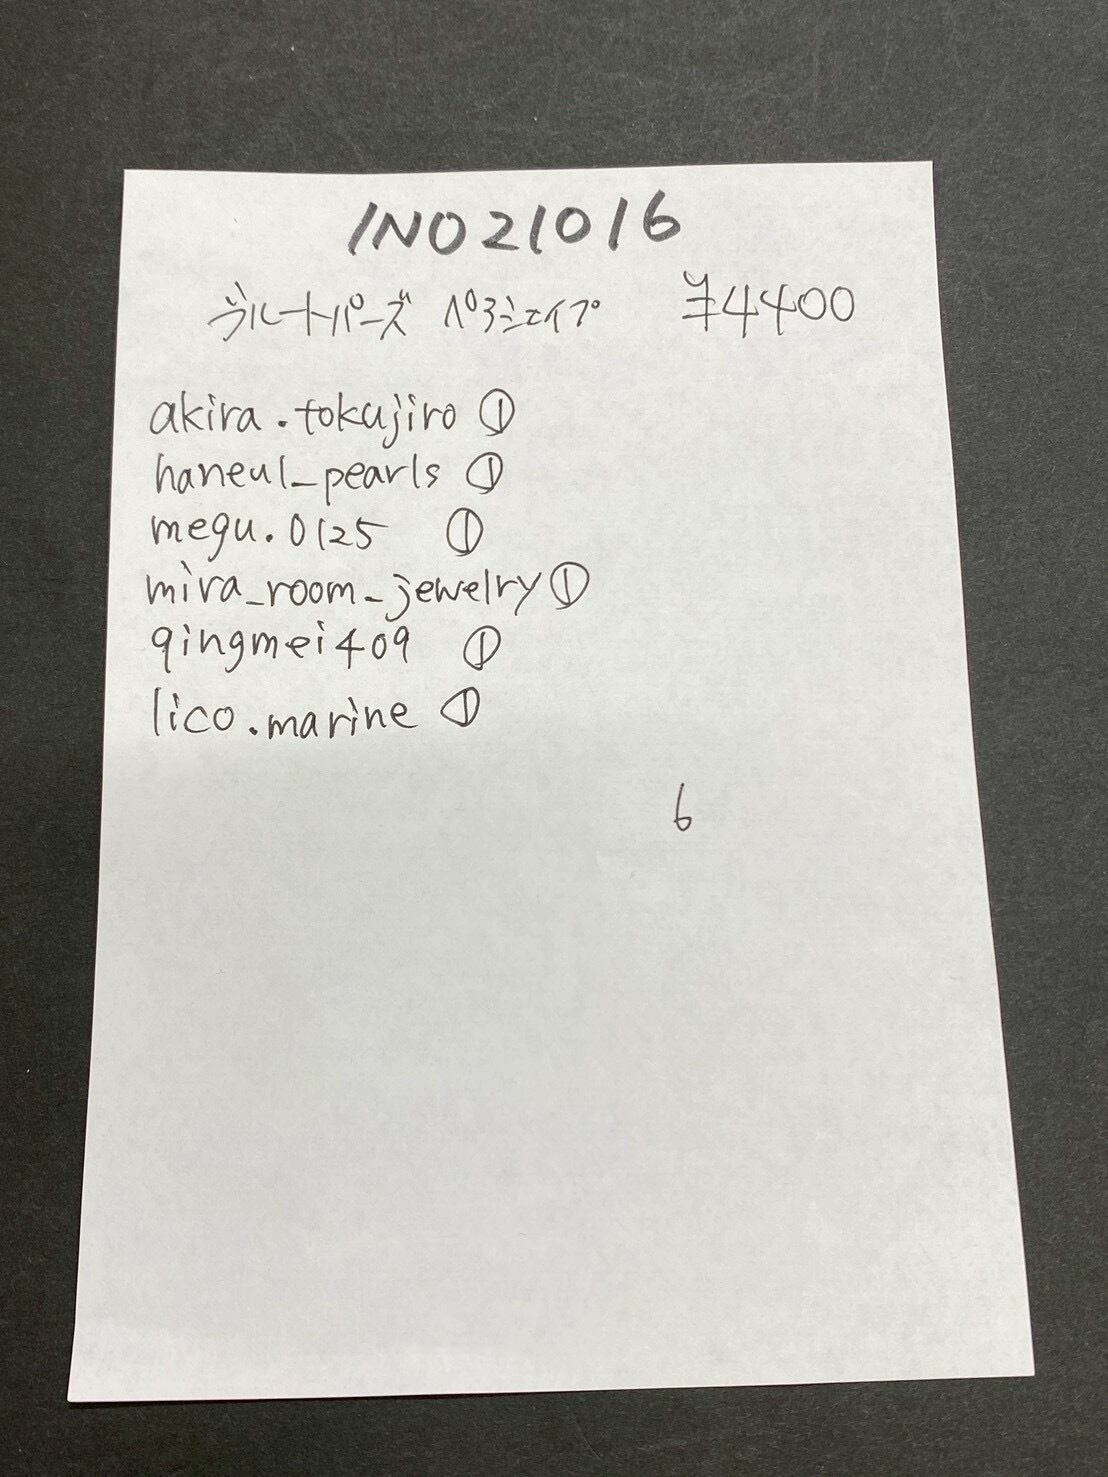 INO21016
ブルートパーズ ペアシェイプ ¥4400
akira.tokujiro ①
haneul_pearls ①
megu.0125 ①
mira_room_jewelry ①
qingmei409 ①
lico.marine ①
6